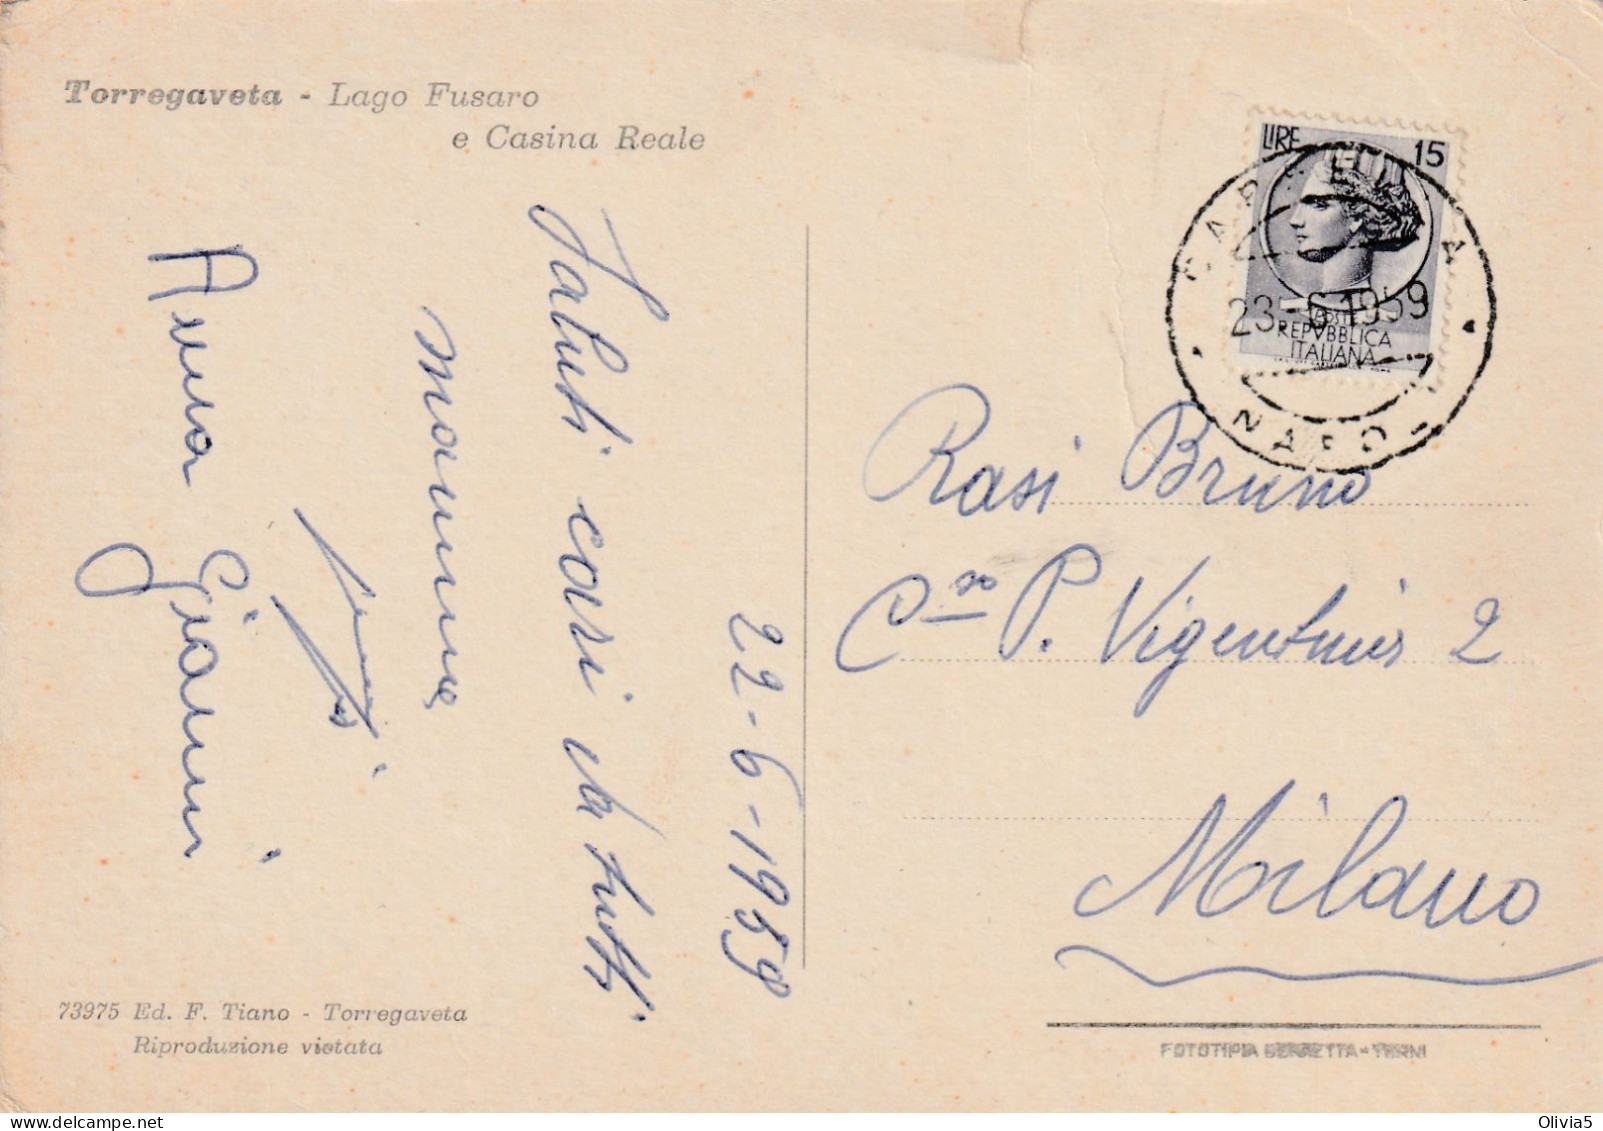 Torregaveta - Lago Fusaro
e Casina Reale
22-6-1959
Saluti cari da tutti
mamma
Anna Gianni
LIRE 15
POSTE
REPVBBLICA
ITALIANA
23-6-1959
Rasi Bruno
C.so P. Vigentina 2
Milano
73975 Ed. F. Tiano - Torregaveta
Riproduzione vietata
FOTOTIPIA BERRETTA - TERNI
Olivia5